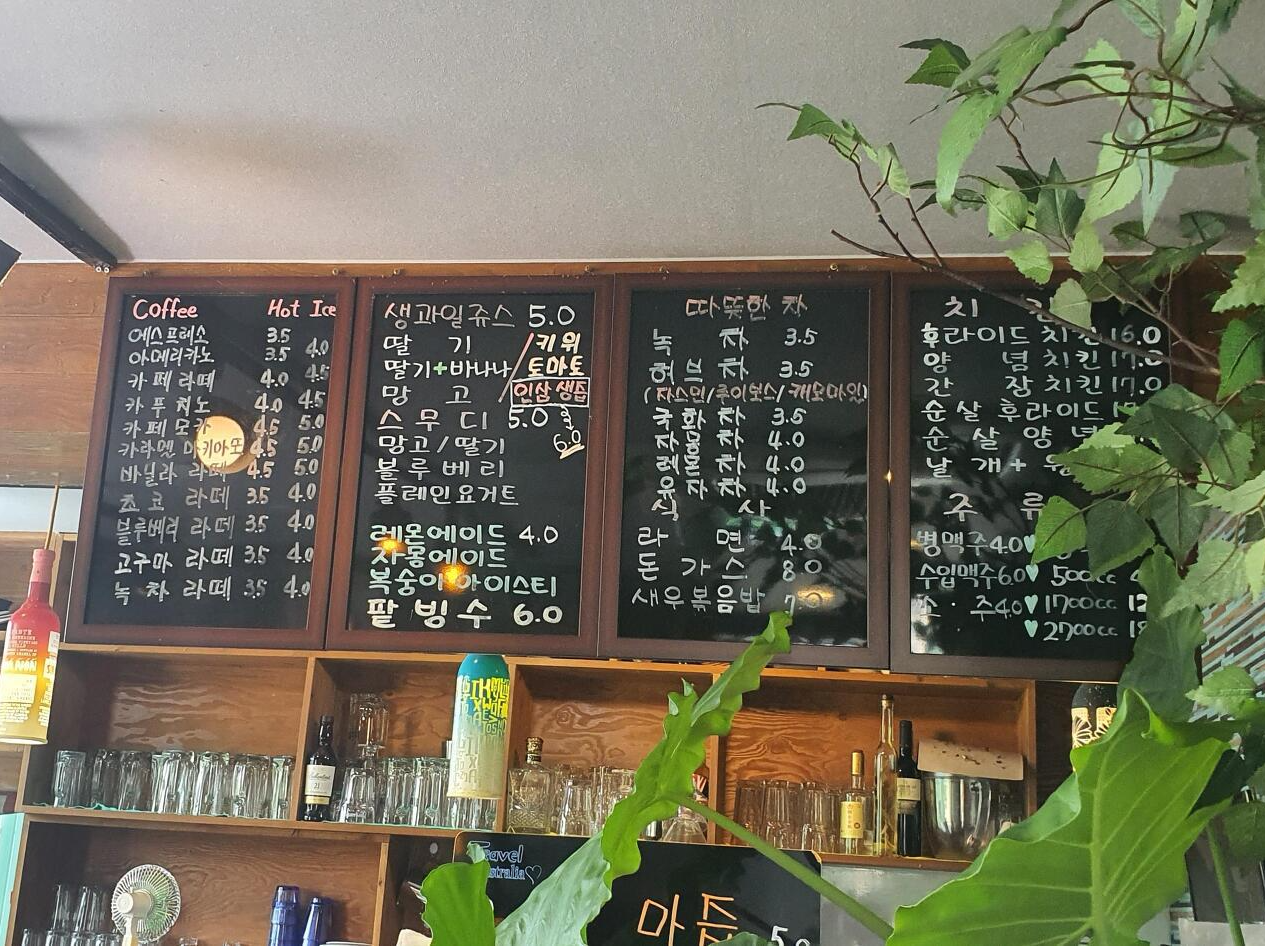 Coffee Hot Ice
에스프레소 3.5
아메리카노 3.5 4.0
카페라떼 4.0 4.5
카푸치노 4.0 4.5
카페모카 4.5 5.0
카라멜 마키아또 4.5 5.0
바닐라 라떼 4.5 5.0
쵸코 라떼 3.5 4.0
블루베리 라떼 3.5 4.0
고구마 라떼 3.5 4.0
녹차 라떼 3.5 4.0
생과일쥬스 5.0
딸기 / 키위
딸기+바나나 토마토
망고 인삼 생즙
6.0
스무디 5.0
망고/딸기
블루베리
플레인요거트
레몬에이드 4.0
자몽에이드
복숭아 아이스티
팥빙수 6.0
따뜻한 차
녹차 3.5
허브차 3.5
(자스민/루이보스/캐모마일)
국화차 3.5
자몽차 4.0
레몬차 4.0
유자차 4.0
식사
라면 4.0
돈가스 8.0
새우볶음밥 7.
치
후라이드 치킨 16.0
양념치킨 17.0
간장치킨 17.0
순살후라이드
순살양념
날개+
주류
병맥주 4.0♥
수입맥주 6.0♥ 500cc
소·주 4.0♥ 1700cc
♥ 2700cc
Travel
마즙